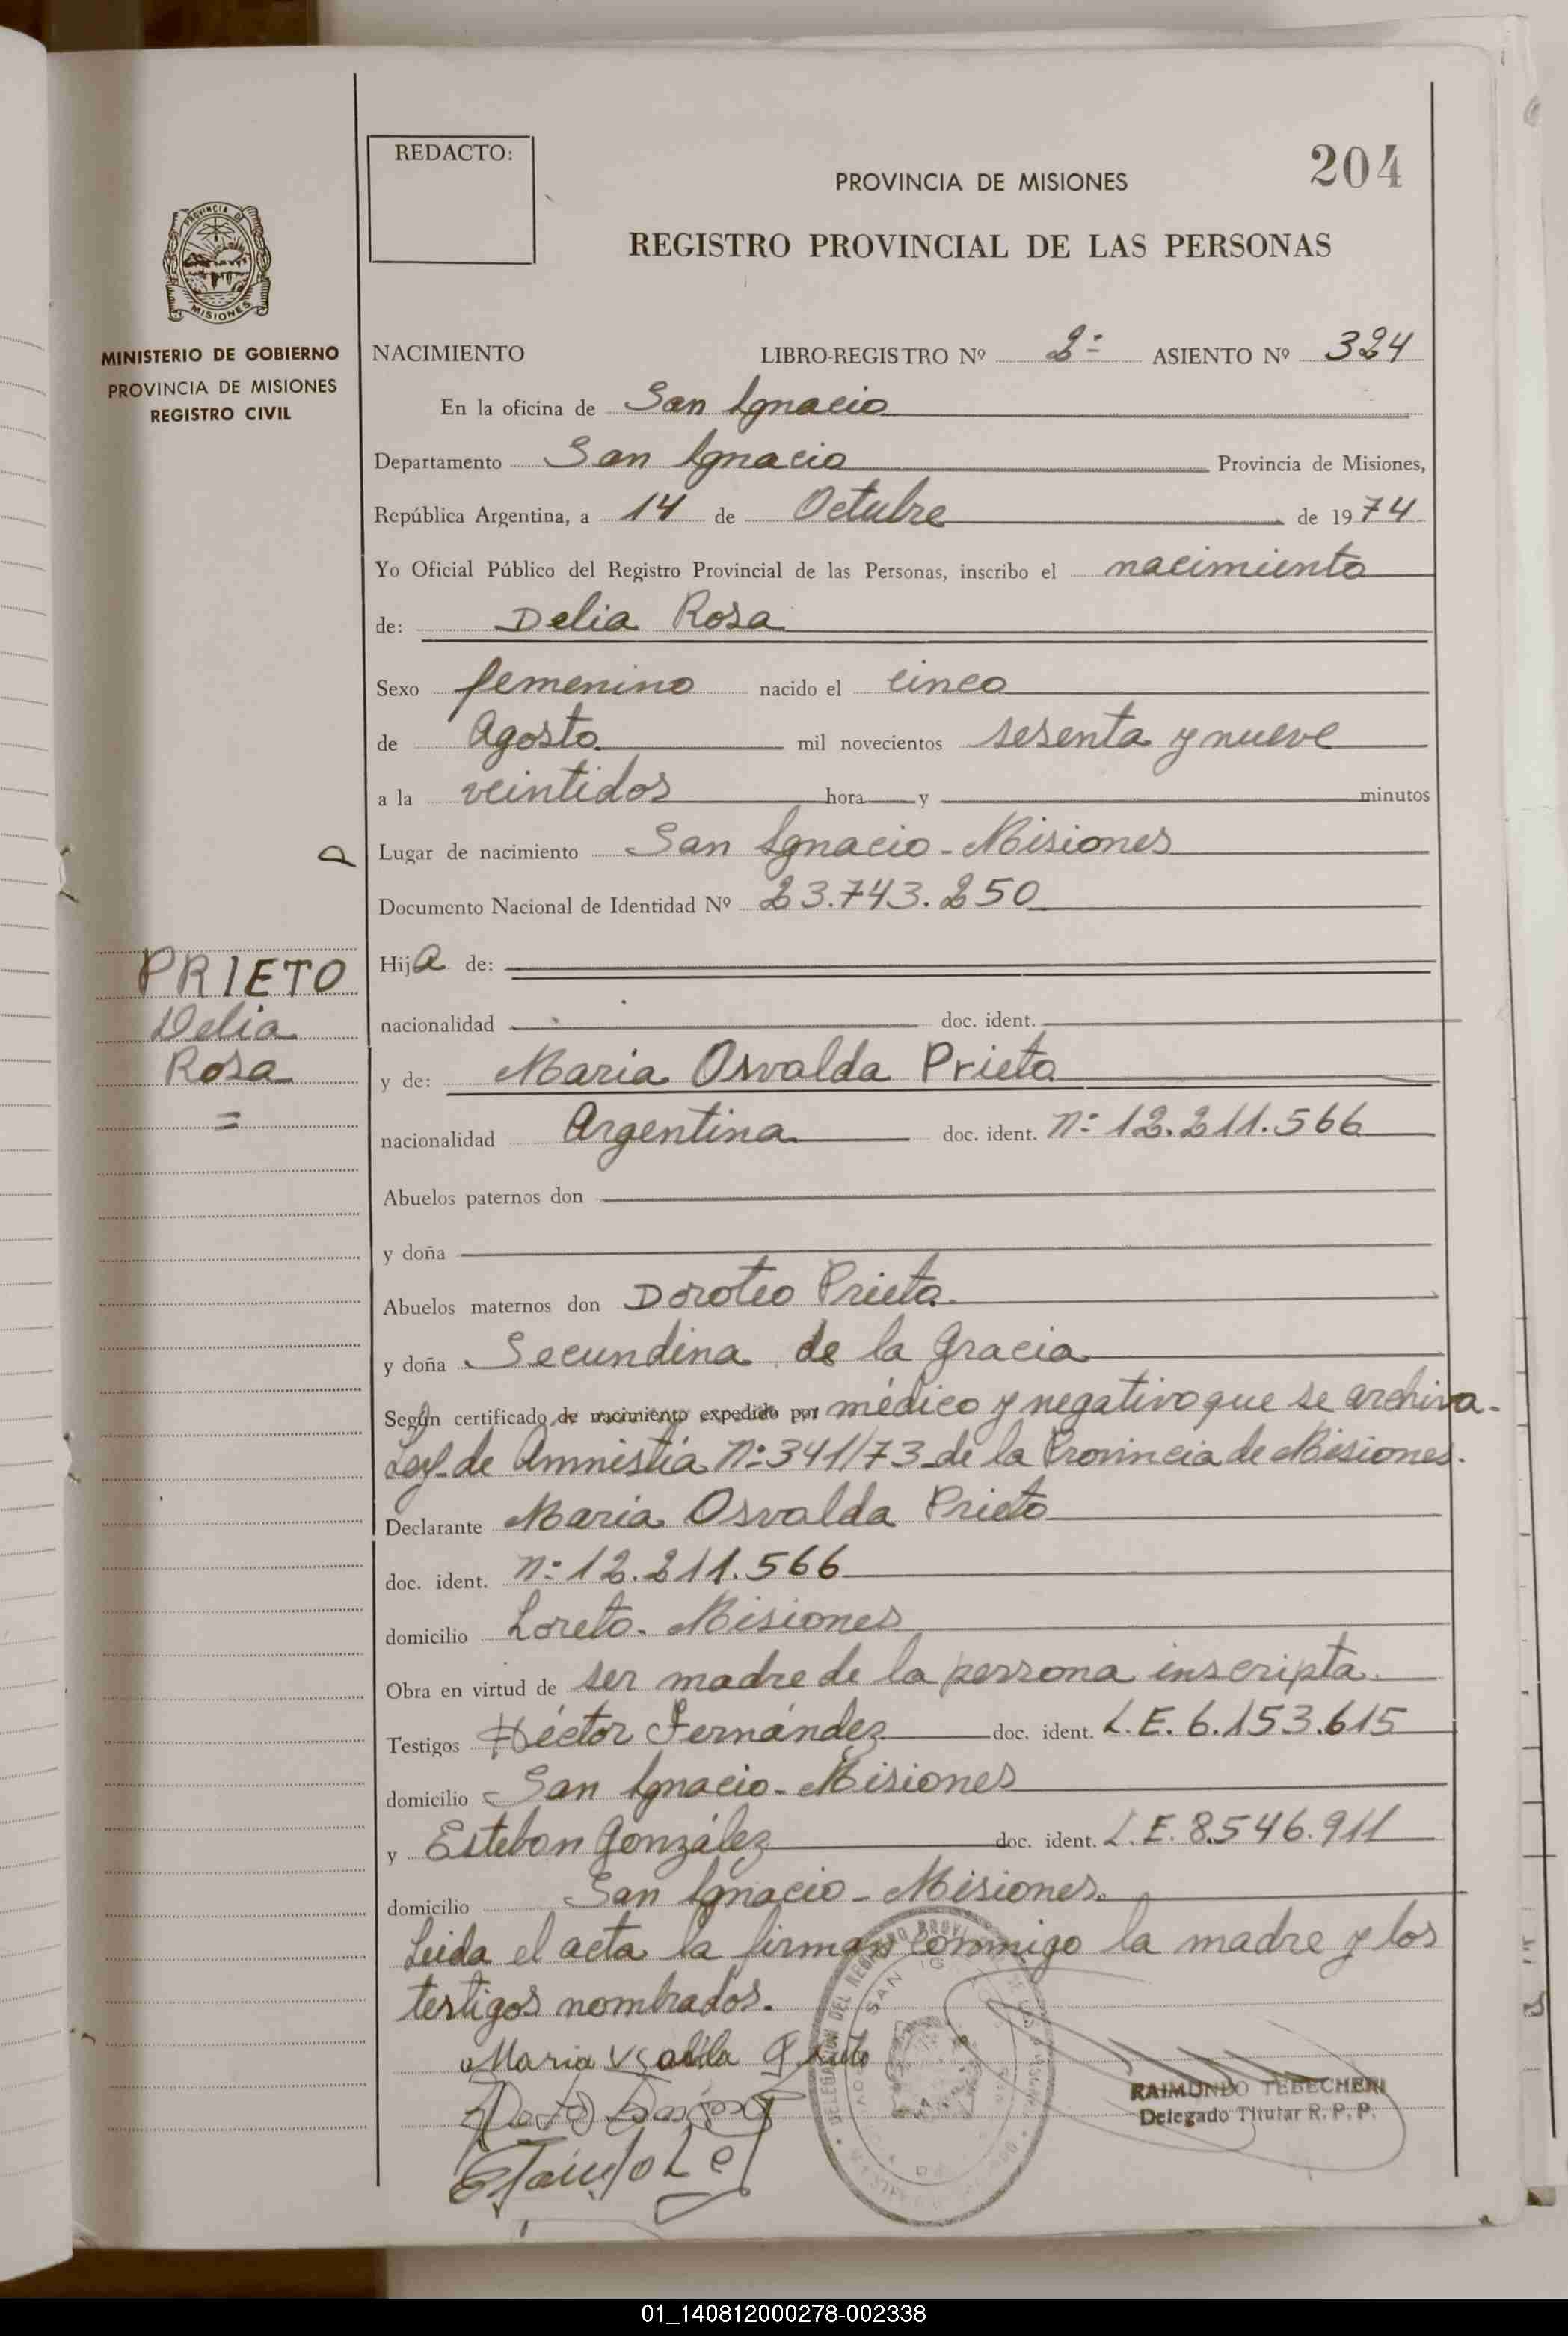 REDACTO:
204
PROVINCIA DE MISIONES
REGISTRO PROVINCIAL DE LAS PERSONAS
PROVINCIA DE
MISIONES
MINISTERIO DE GOBIERNO
PROVINCIA DE MISIONES
REGISTRO CIVIL
NACIMIENTO LIBRO-REGISTRO Nº 2º ASIENTO Nº 324
En la oficina de San Ignacio
Departamento San Ignacio Provincia de Misiones,
República Argentina, a 14 de Octubre de 1974
Yo Oficial Público del Registro Provincial de las Personas, inscribo el nacimiento
de: Delia Rosa
Sexo femenino nacido el cinco
de Agosto mil novecientos sesenta y nueve
a la veintidos hora y minutos
Lugar de nacimiento San Ignacio - Misiones
Documento Nacional de Identidad Nº 23.743.250
PRIETO
Delia
Rosa
=
Hija de:
nacionalidad doc. ident.
y de: Maria Osvalda Prieto
nacionalidad Argentina doc. ident. nº 12.211.566
Abuelos paternos don
y doña
Abuelos maternos don Doroteo Prieto.
y doña Secundina de la Gracia
Según certificado de nacimiento expedido por médico y negativo que se archiva.
Ley de Amnistía Nº 341/73 de la Provincia de Misiones.
Declarante Maria Osvalda Prieto
doc. ident. nº 12.211.566
domicilio Loreto. Misiones
Obra en virtud de ser madre de la persona inscripta.
Testigos Héctor Fernández doc. ident. L.E. 6.153.615
domicilio San Ignacio - Misiones
y Esteban González doc. ident. L.E. 8.546.911
domicilio San Ignacio - Misiones.
Leida el acta la firman conmigo la madre y los
testigos nombrados.
Maria
DELEGACION DEL REGISTRO
SAN IG
RAIMUNDO TEBECHERI
Delegado Titular R. P. P.
01_140812000278-002338